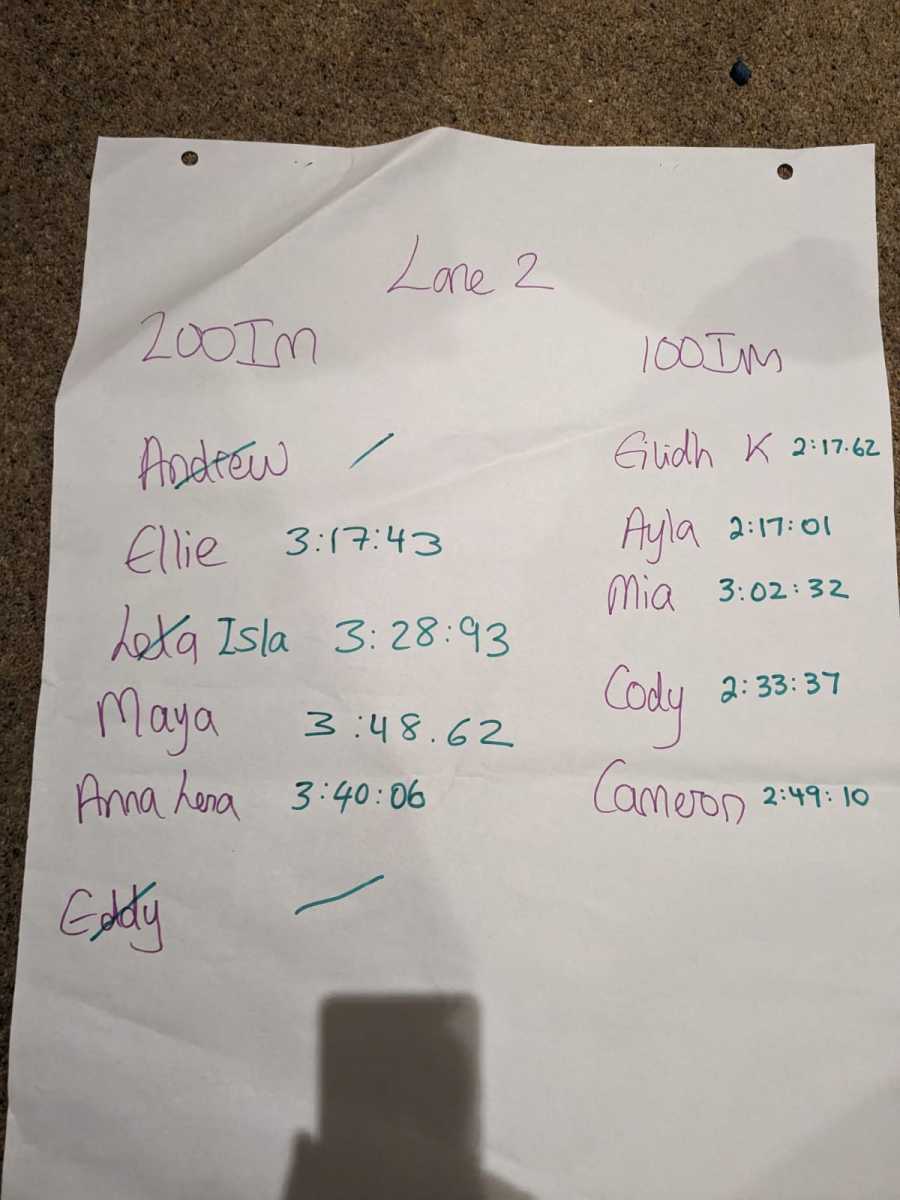 Lane 2
200Im
Andrew /
Ellie 3:17:43
Lexa Isla 3:28:93
Maya 3:48.62
Anna Lena 3:40:06
Eddy /
100Im
Eilidh K 2:17.62
Ayla 2:17:01
Mia 3:02:32
Cody 2:33:37
Cameron 2:49:10